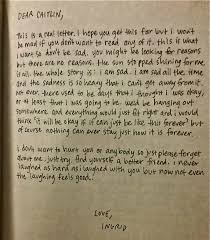 DEAR CAITLIN,
This is a real letter. I hope you get this far but I won't
be mad if you don't want to read any of it. this is what
I want so don't be sad. you might be looking for reasons
but there are no reasons. the sun stopped shining for me
is all. the whole story is: i am sad. i am sad all the time
and the sadness is so heavy that i can't get away from it.
not ever. there used to be days that i thought i was okay,
or at least that i was going to be. we'd be hanging out
somewhere and everything would just fit right and i would
think "it will be okay if it can just be like this forever" but
of course nothing can ever stay just how it is forever.
i don't want to hurt you or anybody so just please forget
about me. just try. find yourself a better friend. i never
laughed as hard as i laughed with you but now not even
the laughing feels good.
LOVE,
INGRID